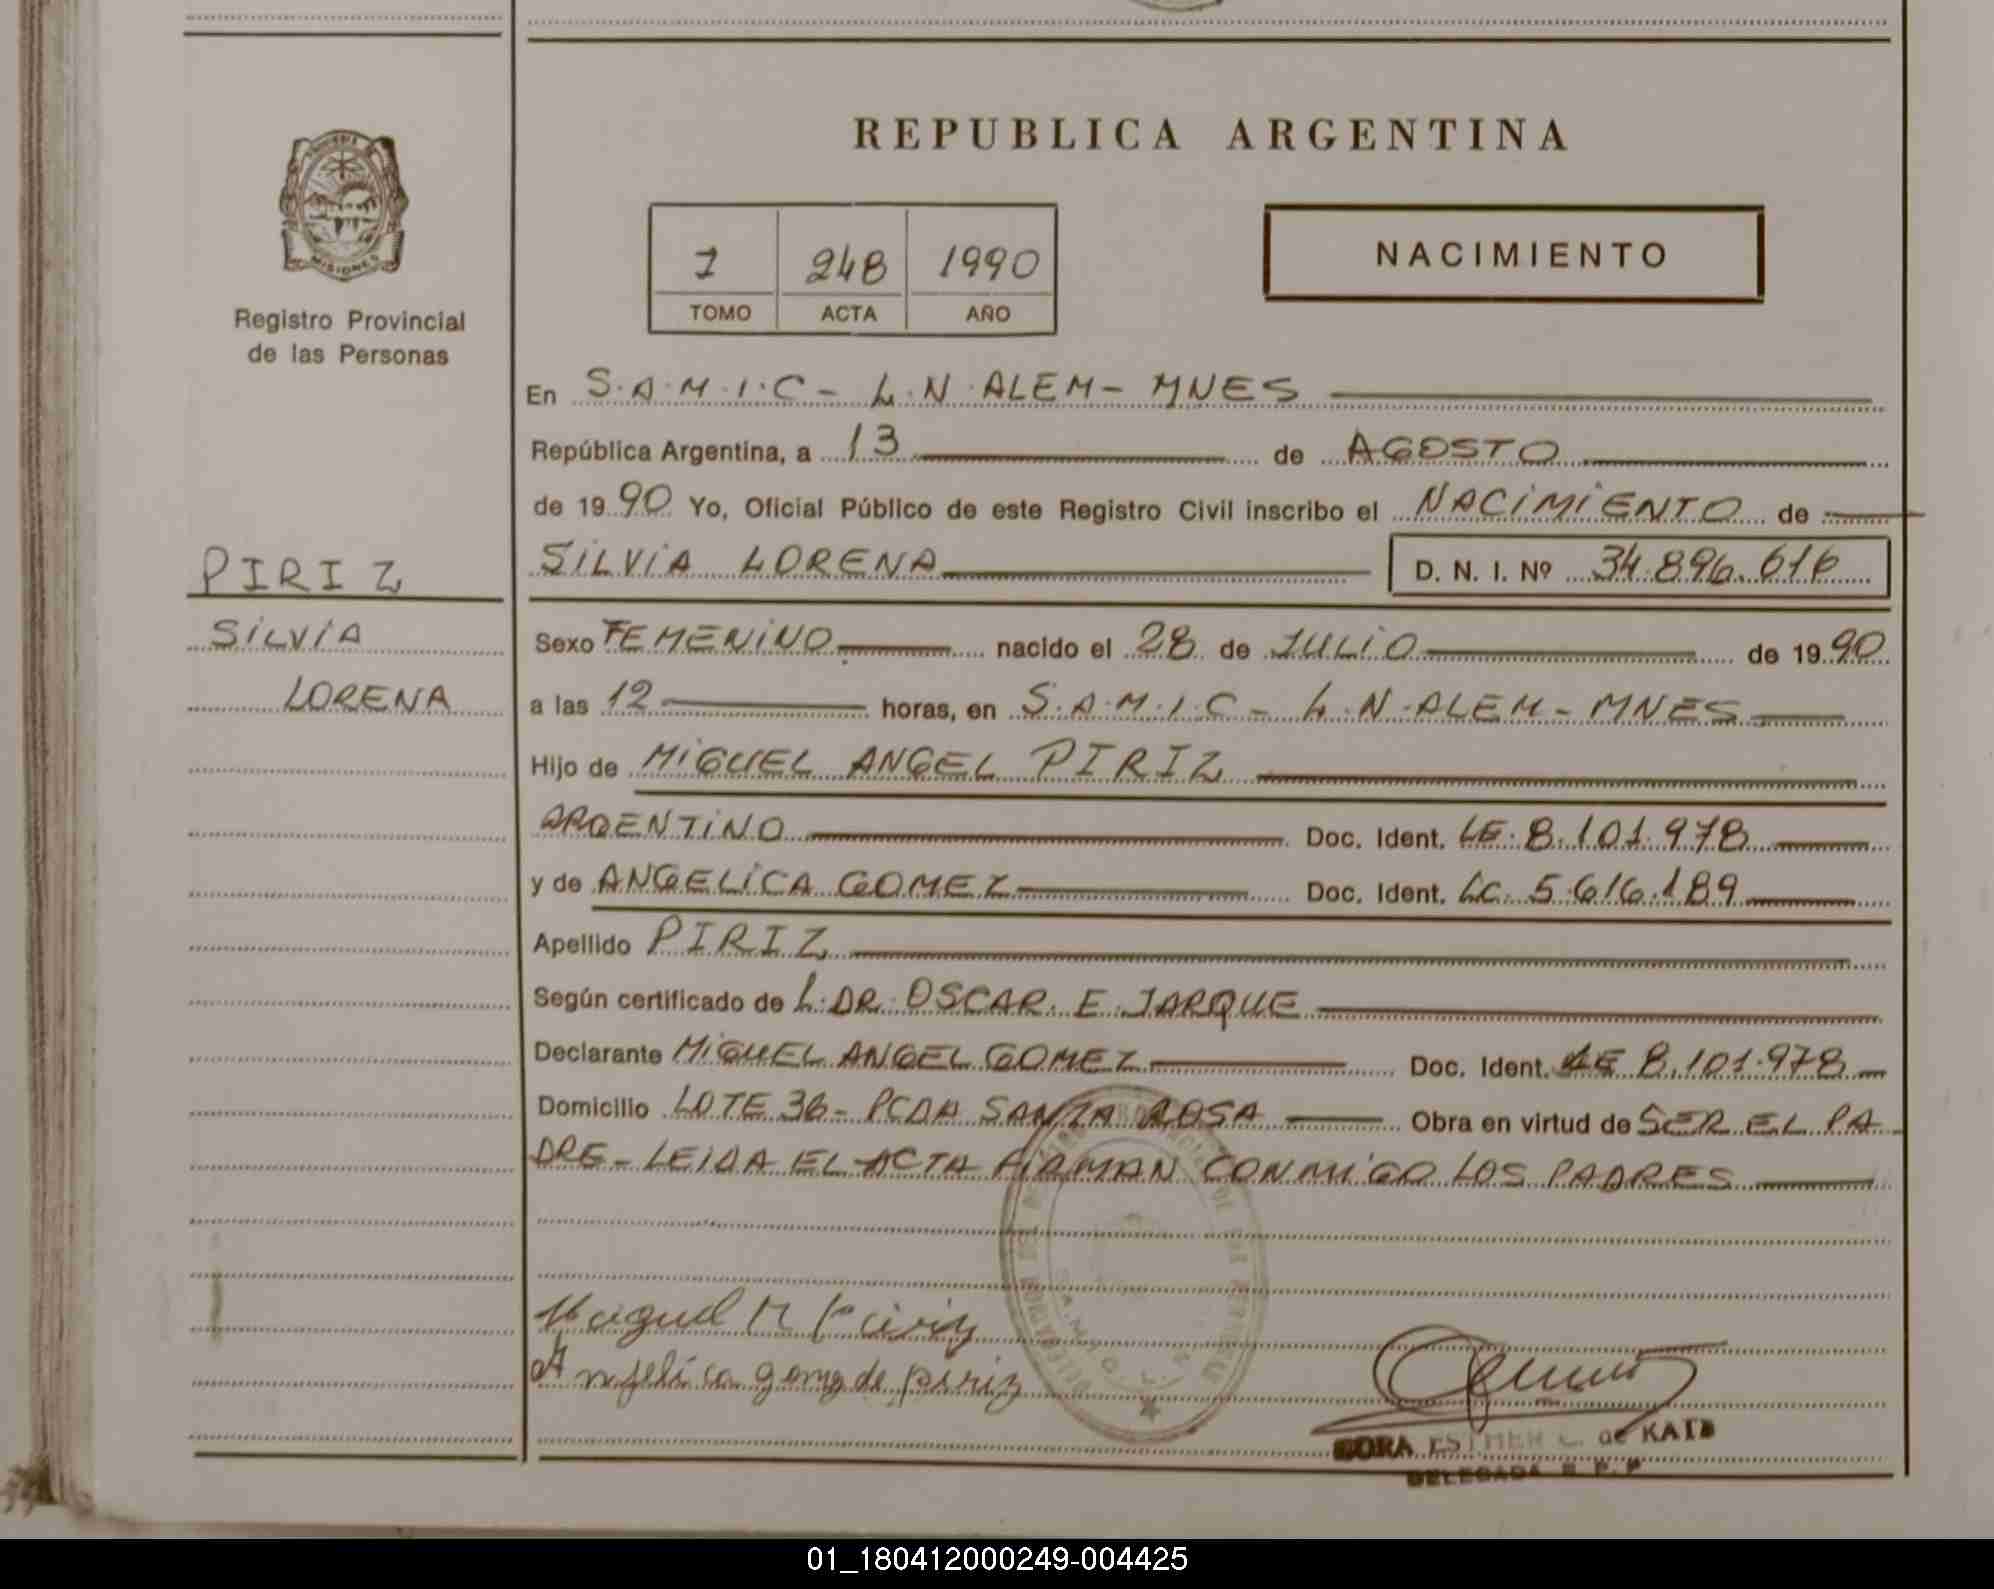 REPUBLICA ARGENTINA
PROVINCIA DE
MISIONES
Registro Provincial
de las Personas
1 248 1990
TOMO ACTA AÑO
NACIMIENTO
En S.A.M.I.C - L.N.ALEM - MNES
República Argentina, a 13 de AGOSTO
de 1990 Yo, Oficial Público de este Registro Civil inscribo el NACIMIENTO de
SILVIA LORENA D. N. I. Nº 34.896.616
PIRIZ
SILVIA
LORENA
Sexo FEMENINO nacido el 28 de JULIO de 1990
a las 12 horas, en S.A.M.I.C - L.N.ALEM - MNES
Hijo de MIGUEL ANGEL PIRIZ
ARGENTINO Doc. Ident. LE. 8.101.978
y de ANGELICA GOMEZ Doc. Ident. LC. 5.616.189
Apellido PIRIZ
Según certificado de L. DR. OSCAR. E. JARQUE
Declarante MIGUEL ANGEL GOMEZ Doc. Ident. LE 8.101.978
Domicilio LOTE 36 - PCDA SANTA ROSA Obra en virtud de SER EL PA
DRE - LEIDA EL ACTA FIRMAN CONMIGO LOS PADRES
Angelica gomz de piriz
ESTHER C. de KAIB
DELEGADA R. P. P
01_180412000249-004425